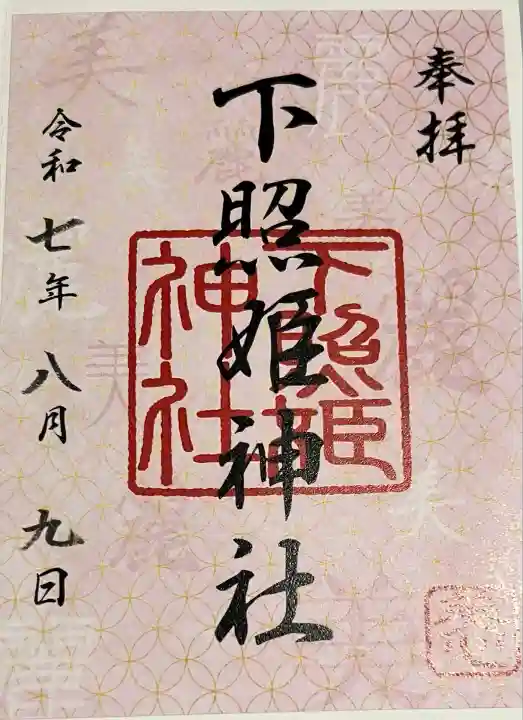 奉拝
下照姫神社
下照姫
神社
令和七年八月九日
美
麗
美
美